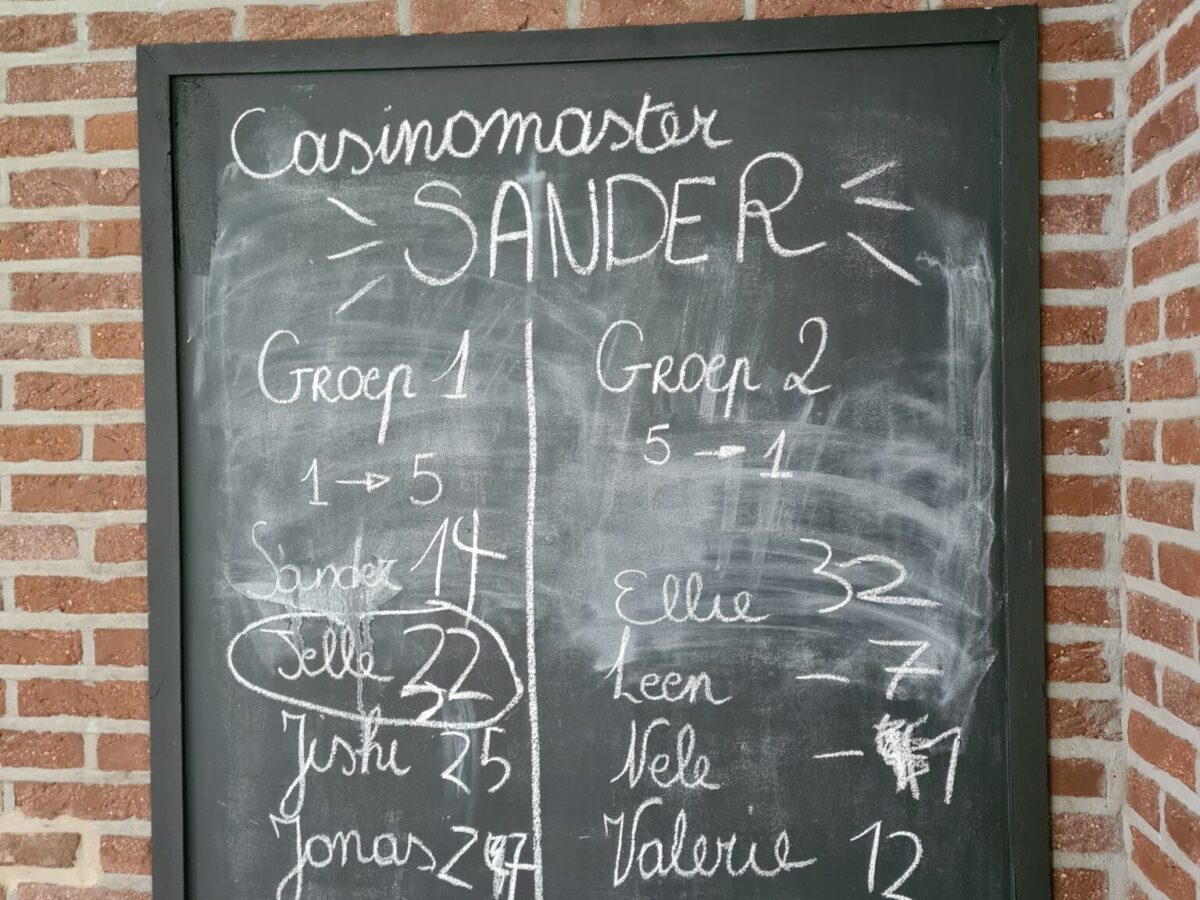 Casinomaster
SANDER
Groep 1
1 → 5
Sander 14
Jelle 22
Jiski 25
Jonas
Groep 2
5 → 1
Ellie 32
Leen - 7
Nele - 1
Valerie 12